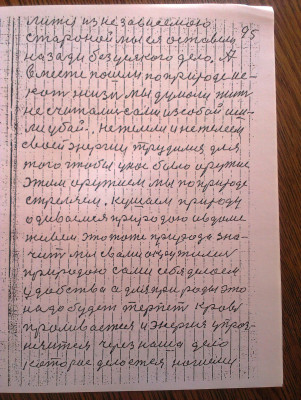 95
литу из независемою
стороной мы ся оставим
назади безусякого дело, А
вместе пошли по природе ис-
кат жизн мы думаем жит
не считали сами из собой
ли убай., не жалели и не жалеем
своей энергии трудимся для
того чтобы у нас было оружие
этим оружием мы по природе
стреляем. кушаем природу
одиваемся природою в доме
живем это тоже природа зна-
чит мы своами окружили
природою сами себя делаем
удобства а для природы это
надо будет терпет кровь
проливается и энергия упраз-
няится через наша дело
которое делается нашими